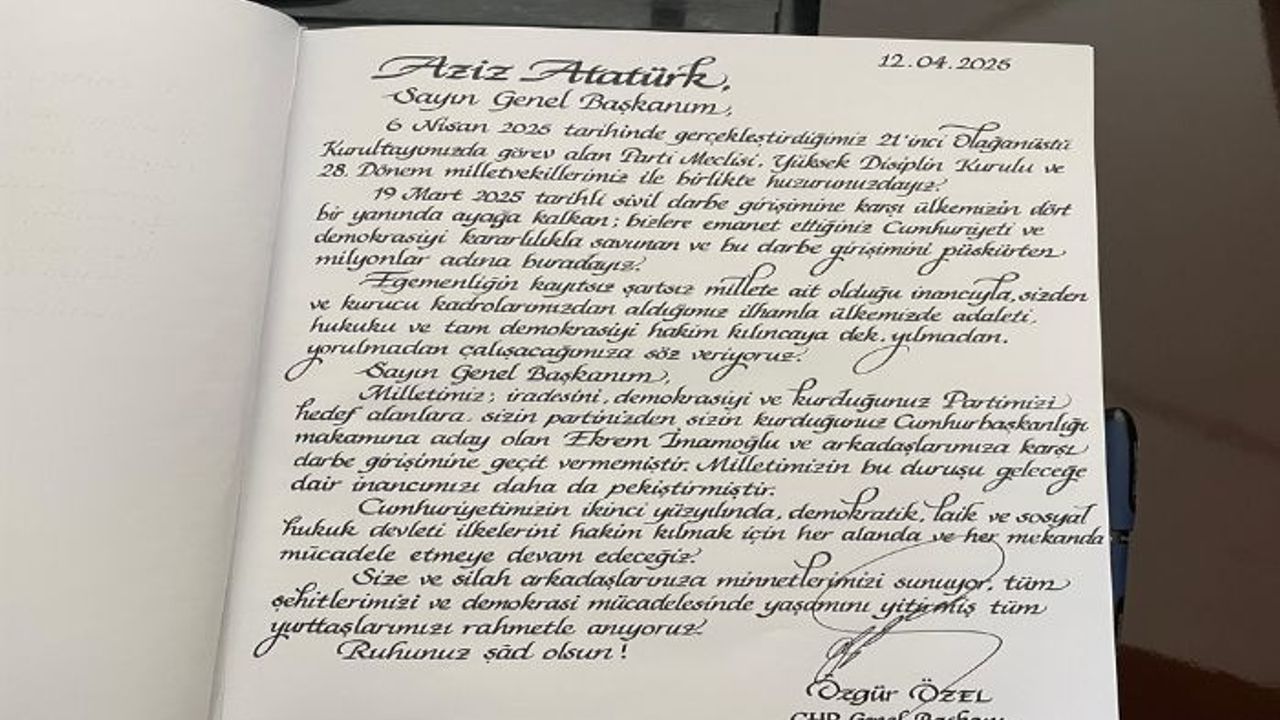 12.04.2025
Aziz Atatürk,
Sayın Genel Başkanım,
6 Nisan 2025 tarihinde gerçekleştirdiğimiz 21'inci Olağanüstü
Kurultayımızda görev alan Parti Meclisi, Yüksek Disiplin Kurulu ve
28. Dönem milletvekillerimiz ile birlikte huzurunuzdayız.
19 Mart 2025 tarihli sivil darbe girişimine karşı ülkemizin dört
bir yanında ayağa kalkan; bizlere emanet ettiğiniz Cumhuriyeti ve
demokrasiyi kararlılıkla savunan ve bu darbe girişimini püskürten
milyonlar adına buradayız.
Egemenliğin kayıtsız şartsız millete ait olduğu inancıyla, sizden
ve kurucu kadrolarımızdan aldığımız ilhamla ülkemizde adaleti,
hukuku ve tam demokrasiyi hakim kılıncaya dek, yılmadan,
yorulmadan çalışacağımıza söz veriyoruz.
Sayın Genel Başkanım,
Milletimiz; iradesini, demokrasiyi ve kurduğunuz Partimizi
hedef alanlara, sizin partinizden sizin kurduğunuz Cumhurbaşkanlığı
makamına aday olan Ekrem İmamoğlu ve arkadaşlarımıza karşı
darbe girişimine geçit vermemiştir. Milletimizin bu duruşu geleceğe
dair inancımızı daha da pekiştirmiştir.
Cumhuriyetimizin ikinci yüzyılında, demokratik, laik ve sosyal
hukuk devleti ilkelerini hakim kılmak için her alanda ve her mekanda
mücadele etmeye devam edeceğiz.
Size ve silah arkadaşlarınıza minnetlerimizi sunuyor, tüm
şehitlerimizi ve demokrasi mücadelesinde yaşamını yitirmiş tüm
yurttaşlarımızı rahmetle anıyoruz.
Ruhunuz şâd olsun!
Özgür ÖZEL
CHP Genel Başkanı